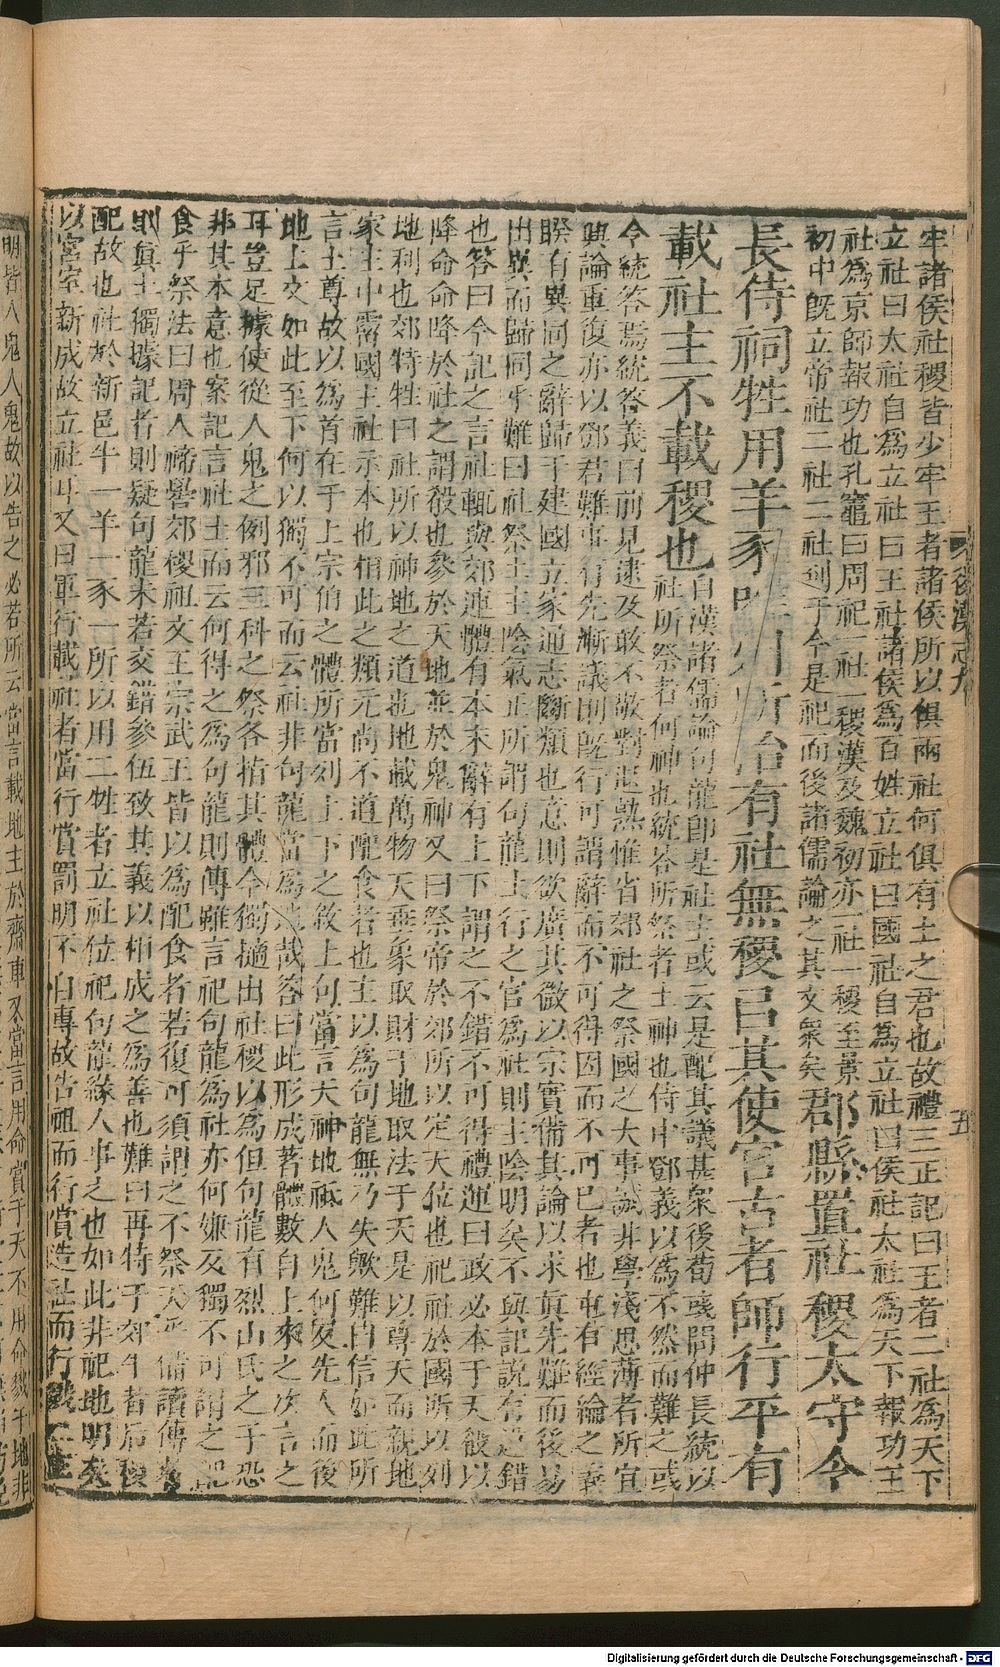 後漢志九　五
牢諸侯社稷皆少牢王者諸侯所以俱兩社何俱有土之君也故禮三正記曰王者二社為天下
立社曰太社自為立社曰王社諸侯為百姓立社曰國社自為立社曰侯社太社為天下報功王
社為京師報功也孔鼂曰周祀一社一稷漢及魏初亦一社一稷至景
初中旣立帝社二社二社到于今是祀而後諸儒論之其文衆矣
郡縣置社稷太守令
長侍祠牲用羊豕唯州所治有社無稷已其使官古者師行平有
載社主不載稷也
自漢諸儒論句龍即是社主或云是配其議甚衆後荀彧問仲長統以
社所祭者何神也統荅所祭者土神也侍中鄧義以為不然而難之或
今統荅焉統荅義曰前見逮及敢不敬對退熟惟省郊社之祭國之大事誠非學淺思薄者所宜
興論重復亦以鄧君難事有先漸議則旣行可謂辭而不可得因而不可已者也屯有經綸之義
睽有異同之辭歸于建國立家通志斷類也意則欲廣其微以宗實備其論以求真先難而後易
出異而歸同乎難曰社祭土主陰氣正所謂句龍土行之官為社則主陰明矣不與記說有違錯
也荅曰今記之言社輒與郊連體有本末辭有上下謂之不錯不可得禮運曰政必本于天殽以
降命命降於社之謂殽地參於天地並於鬼神又曰祭帝於郊所以定天位也祀社於國所以列
地利也郊特牲曰社所以神地之道也地載萬物天垂象取財于地取法于天是以尊天而親地
家主中霤國主社示本也相此之類元尚不道配食者也主以為句龍無乃失歟難曰信如此所
言土尊故以為首在于上宗伯之體所當列上下之敘上句當言天神地祇人鬼何反先人而後
地上文如此至下何以獨不可而云社非句龍當為地哉荅曰此形成著體數自上來之次言之
耳豈足據使從人鬼之例邪三科之祭各指其體今獨擿出社稷以為但句龍有烈山氏之子恐
非其本意也案記言社土而云何得之為句龍則傳雖言祀句龍為社亦何嫌反獨不可謂之配
食乎祭法曰周人禘嚳郊稷祖文王宗武王皆以為配食者若復可須謂之不祭天乎備讀傳者
則真土獨據記者則疑句龍未若交錯參伍致其義以相成之為善也難曰再特于郊牛者后稷
配故也社於新邑牛一羊一豕一所以用二牲者立社位祀句龍緣人事之也如此非祀地明矣
以宮室新成故立社耳又曰軍行載社者當行賞罰明不自專故告祖而行賞造社而行戮二主
明皆人鬼人鬼故以告之必若所云當言載地主於齋車又當言用命賞于天不用命戮于地非
Digitalisierung gefördert durch die Deutsche Forschungsgemeinschaft - DFG